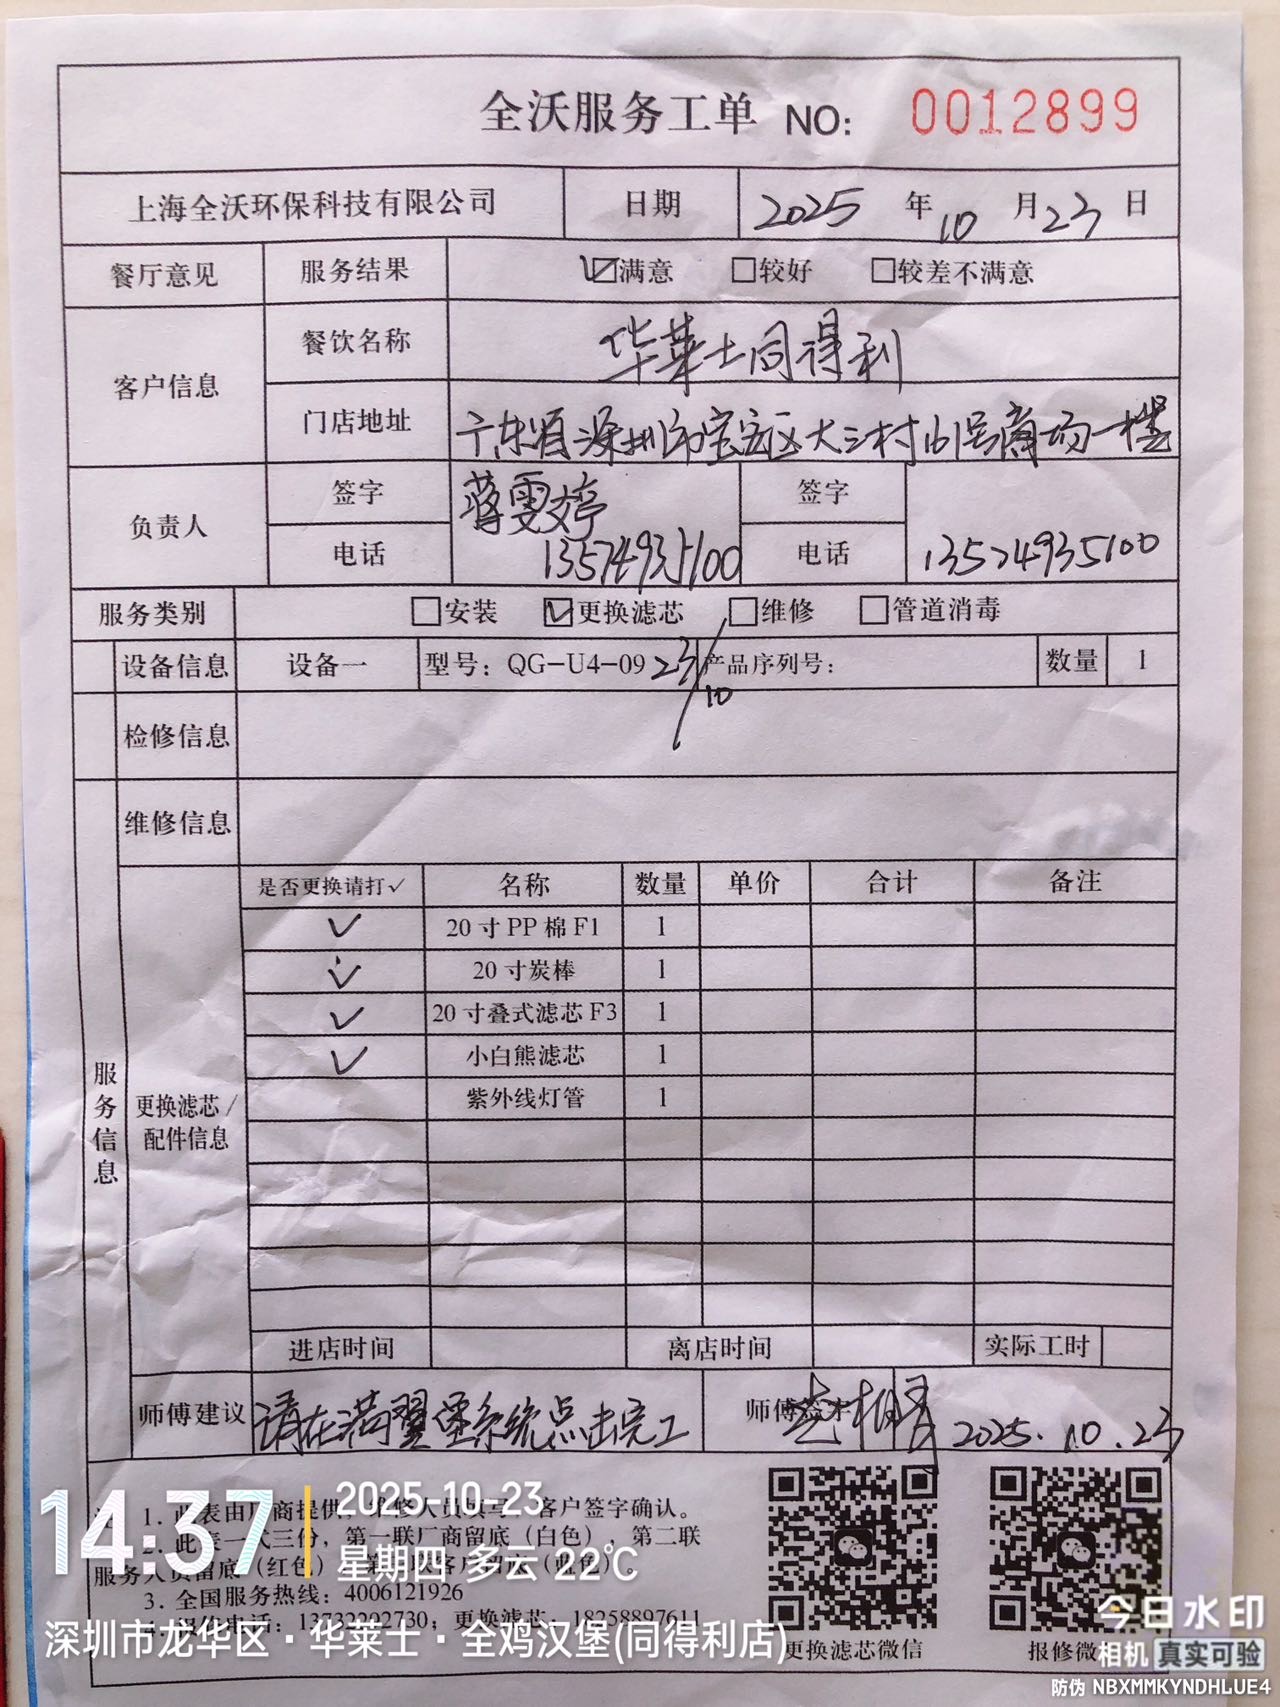 全沃服务工单 NO: 0012899
上海全沃环保科技有限公司 日期 2025 年 10 月 23 日
餐厅意见 服务结果 ☑满意 □较好 □较差不满意
客户信息 餐饮名称 华莱士同得利
门店地址 广东省深圳市宝安区大三村 商场一楼
负责人 签字 蒋雯婷 签字
电话 13574935100 电话 13574935100
服务类别 □安装 ☑更换滤芯 □维修 □管道消毒
设备信息 设备一 型号：QG-U4-09 23/10 产品序列号： 数量 1
检修信息
维修信息
服务信息
更换滤芯/配件信息
是否更换请打✓ 名称 数量 单价 合计 备注
✓ 20寸PP棉F1 1
✓ 20寸炭棒 1
✓ 20寸叠式滤芯F3 1
✓ 小白熊滤芯 1
紫外线灯管 1
进店时间 离店时间 实际工时
师傅建议 请在满翼堡系统点击完工 师傅 2025.10.23
1. 此表由厂商提供，维修人员填写 客户签字确认。
此表一式三份，第一联厂商留底（白色），第二联
服务人员留底（红色） 客户留底（蓝色）
3. 全国服务热线：4006121926
13732292730；更换滤芯：18258897611
更换滤芯微信 报修微
14:37
2025.10.23
星期四 多云 22℃
深圳市龙华区·华莱士·全鸡汉堡(同得利店)
今日水印
相机 真实可验
防伪 NBXMMKYNDHLUE4